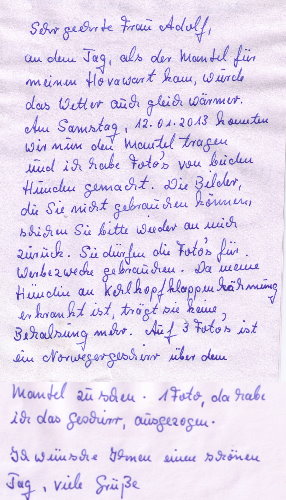 Sehr geehrte Frau Adolf,
an dem Tag, als der Mantel für
meinen Hovawart kam, wurde
das Wetter auch gleich wärmer.
Am Samstag, 12.01.2013 konnten
wir nun den Mantel tragen
und ich habe Foto's von beiden
Hunden gemacht. Die Bilder,
die Sie nicht gebrauchen können,
schicken Sie bitte wieder an mich
zurück. Sie dürfen die Foto's für
Werbezwecke gebrauchen. Da meine
Hündin an Kehlkopfklappenlähmung
erkrankt ist, trägt sie keine,
Behalsung mehr. Auf 3 Fotos ist
ein Norwegergeschirr über dem
Mantel zu sehen. 1 Foto, da habe
ich das Geschirr, ausgezogen.
Ich wünsche Ihnen einen schönen
Tag, viele Grüße